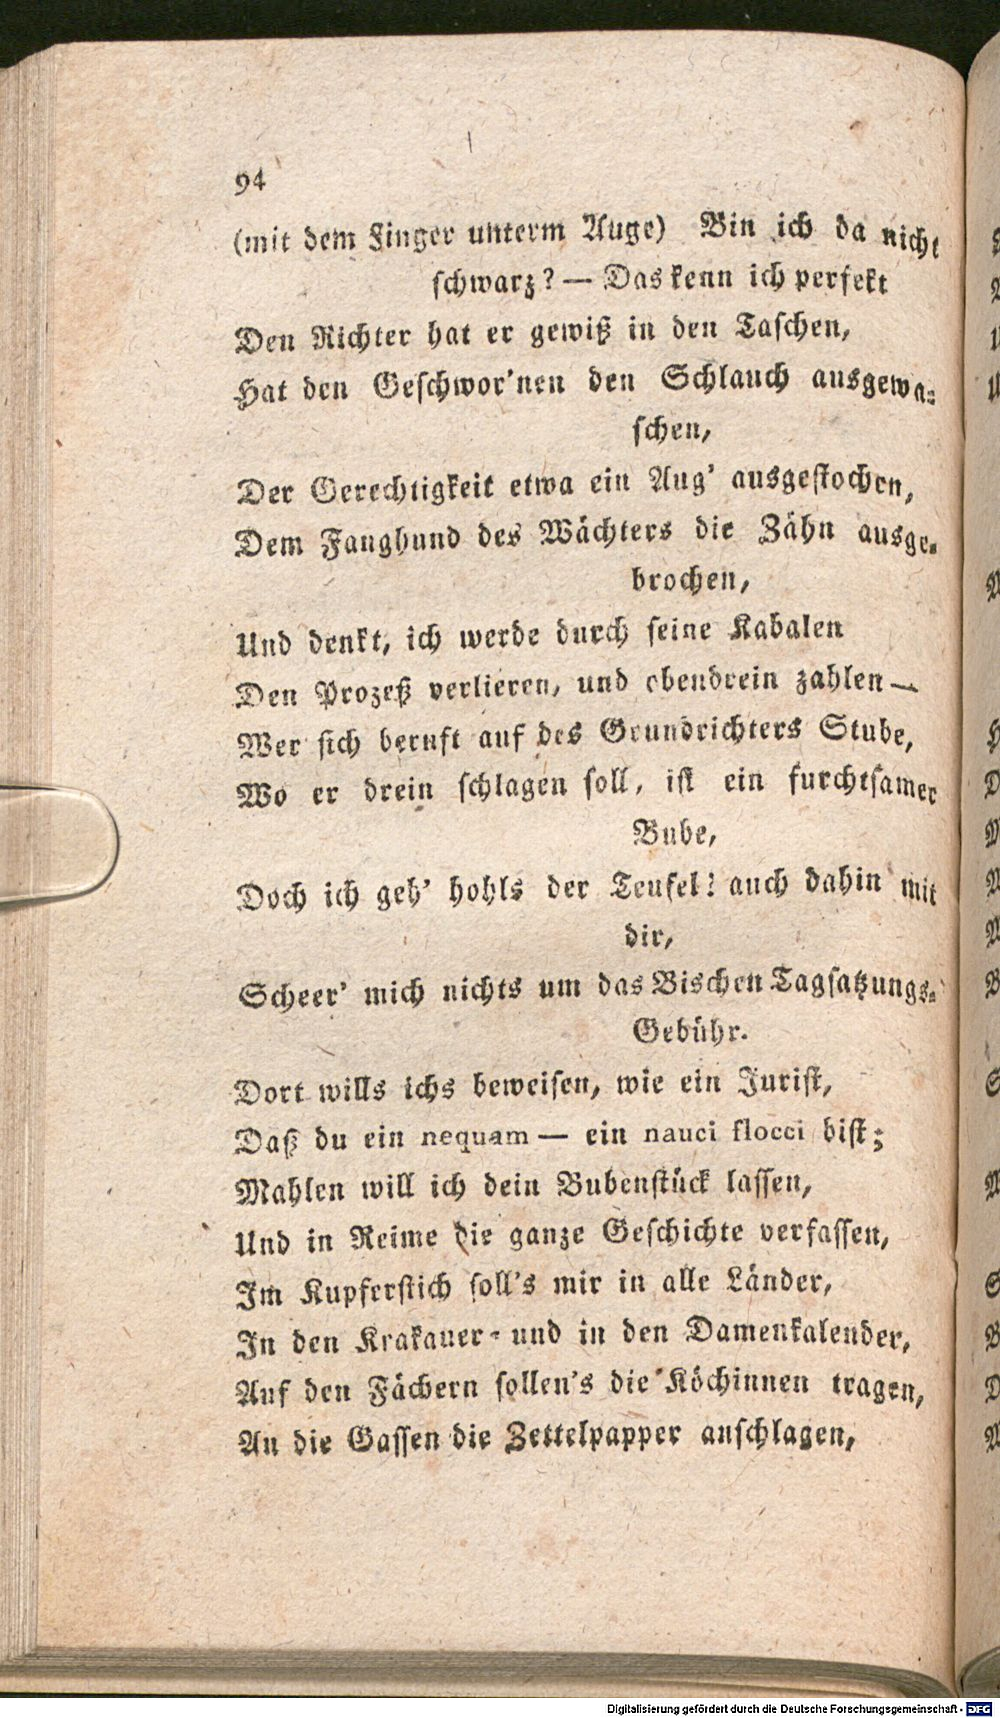 94
(mit dem Finger unterm Auge) Bin ich da nicht
schwarz? — Das kenn ich perfekt
Den Richter hat er gewiß in den Taschen,
Hat den Geschwor'nen den Schlauch ausgewa-
schen,
Der Gerechtigkeit etwa ein Aug' ausgestochen,
Dem Fanghund des Wächters die Zähn ausge-
brochen,
Und denkt, ich werde durch seine Kabalen
Den Prozeß verlieren, und obendrein zahlen —
Wer sich beruft auf des Grundrichters Stube,
Wo er drein schlagen soll, ist ein furchtsamer
Bube,
Doch ich geh' hohls der Teufel! auch dahin mit
dir,
Scheer' mich nichts um das Bischen Tagsatzungs-
Gebühr.
Dort wills ichs beweisen, wie ein Jurist,
Daß du ein nequam — ein nauci flocci bist;
Mahlen will ich dein Bubenstück lassen,
Und in Reime die ganze Geschichte verfassen,
Im Kupferstich soll's mir in alle Länder,
In den Krakauer- und in den Damenkalender,
Auf den Fächern sollen's die Köchinnen tragen,
An die Gassen die Zettelpapper anschlagen,
Digitalisierung gefördert durch die Deutsche Forschungsgemeinschaft - DFG